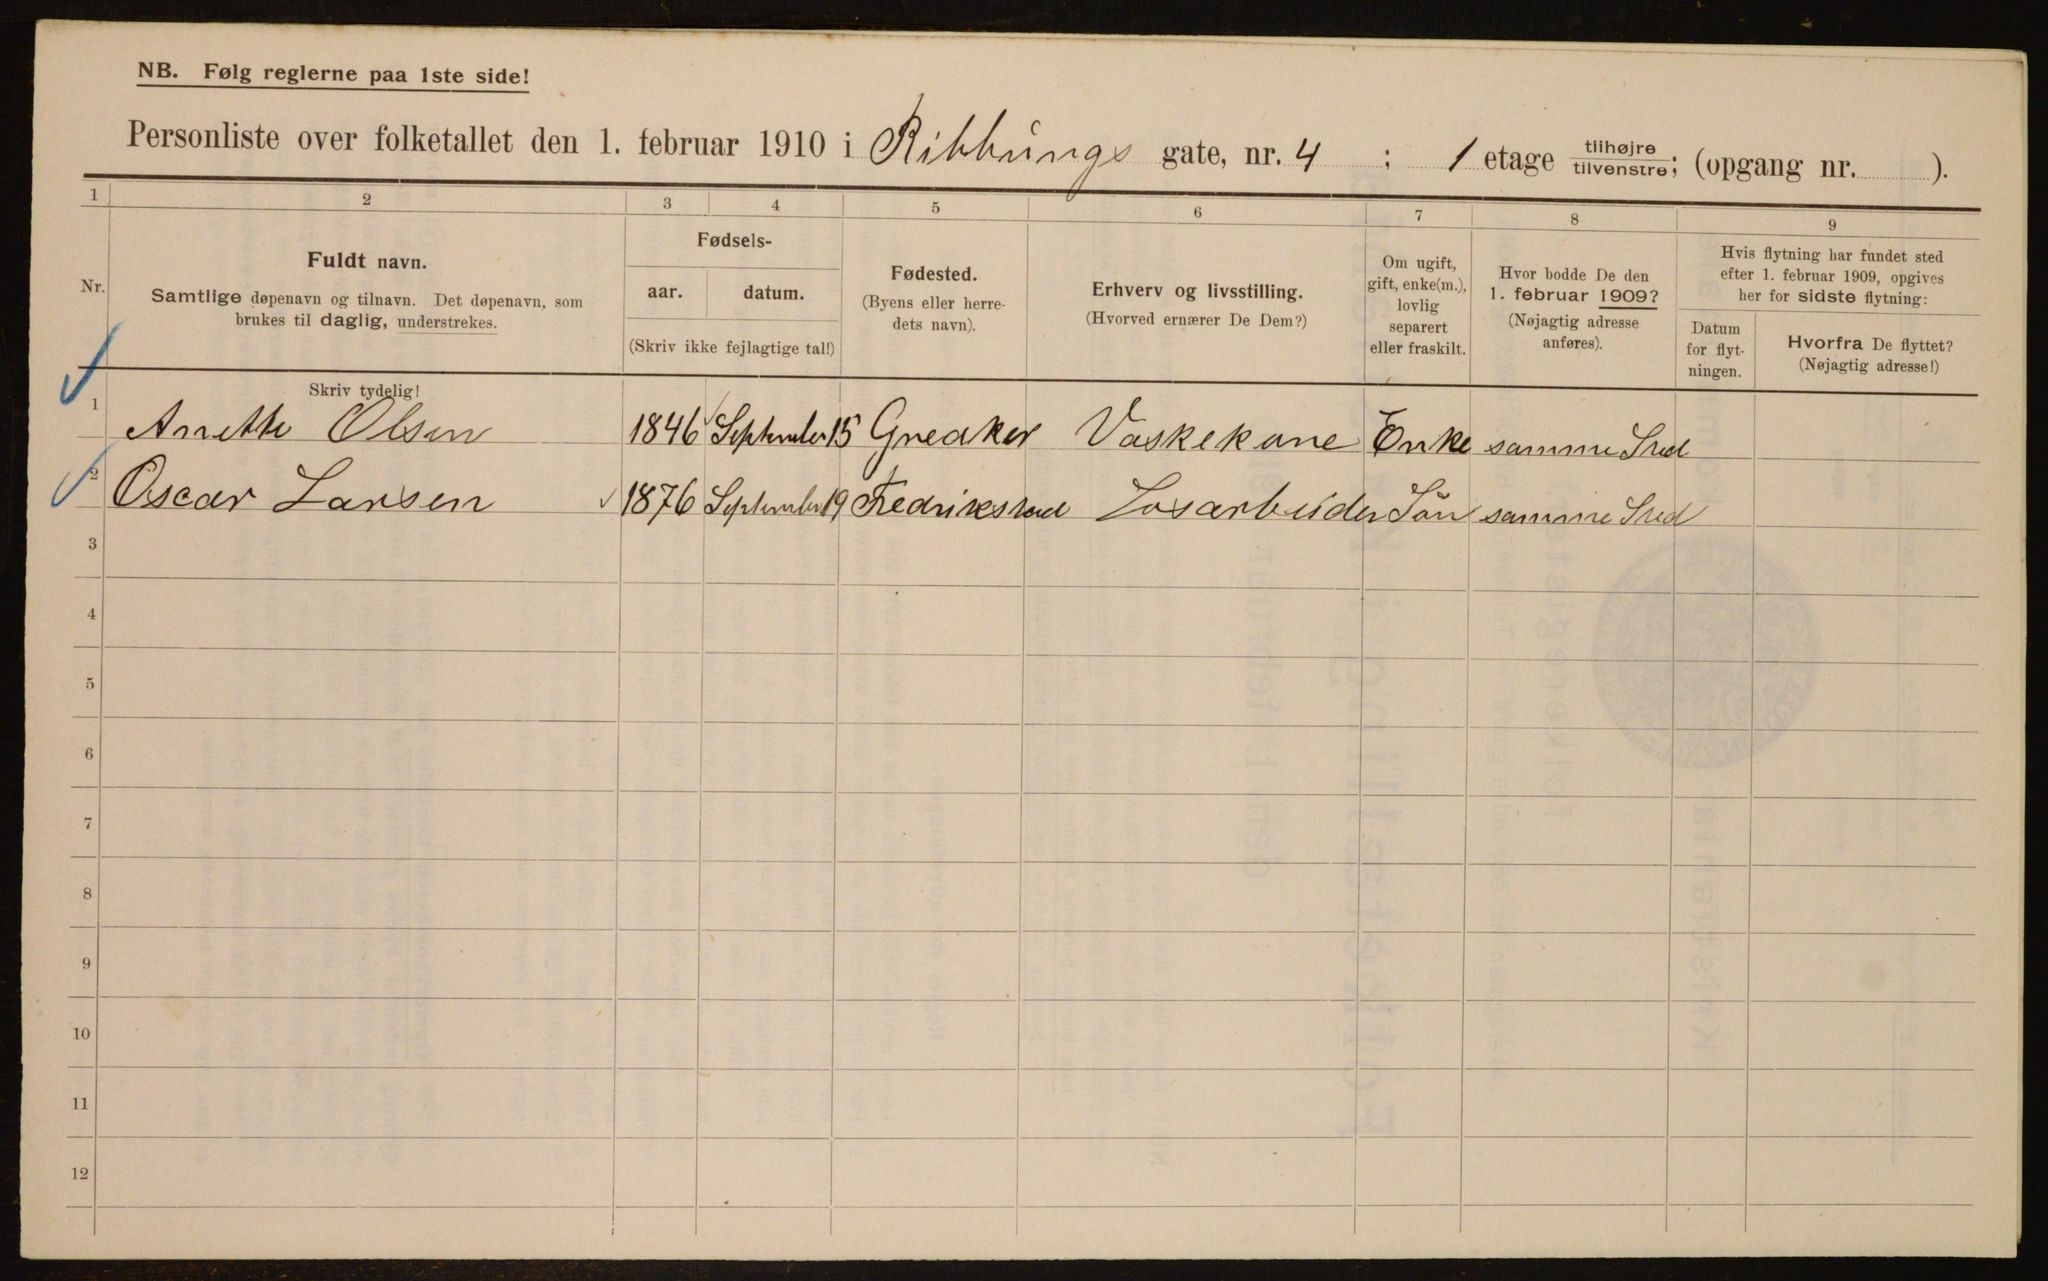 NB. Følg reglerne paa 1ste side!
Personliste over folketallet den 1. februar 1910 i Ribbungs gate, nr. 4 ; 1 etage tilhøjre tilvenstre; (opgang nr. ).
1 2 3 4 5 6 7 8 9
Nr.
Fuldt navn.
Samtlige døpenavn og tilnavn. Det døpenavn, som
brukes til daglig, understrekes.
Skriv tydelig!
Fødsels-
aar. datum.
(Skriv ikke fejlagtige tal!)
Fødested.
(Byens eller herre-
dets navn).
Erhverv og livsstilling.
(Hvorved ernærer De Dem?)
Om ugift,
gift, enke(m.),
lovlig
separert
eller fraskilt.
Hvor bodde De den
1. februar 1909?
(Nøjagtig adresse
anføres).
Hvis flytning har fundet sted
efter 1. februar 1909, opgives
her for sidste flytning:
Datum
for flyt-
ningen.
Hvorfra De flyttet?
(Nøjagtig adresse!)
1 Anette Olsen 1846 September 15 Greaker Vaskekone Enke samme Sted
2 Oscar Larsen 1876 September 19 Fredrikstad Løsarbeider Søn samme Sted
3
4
5
6
7
8
9
10
11
12